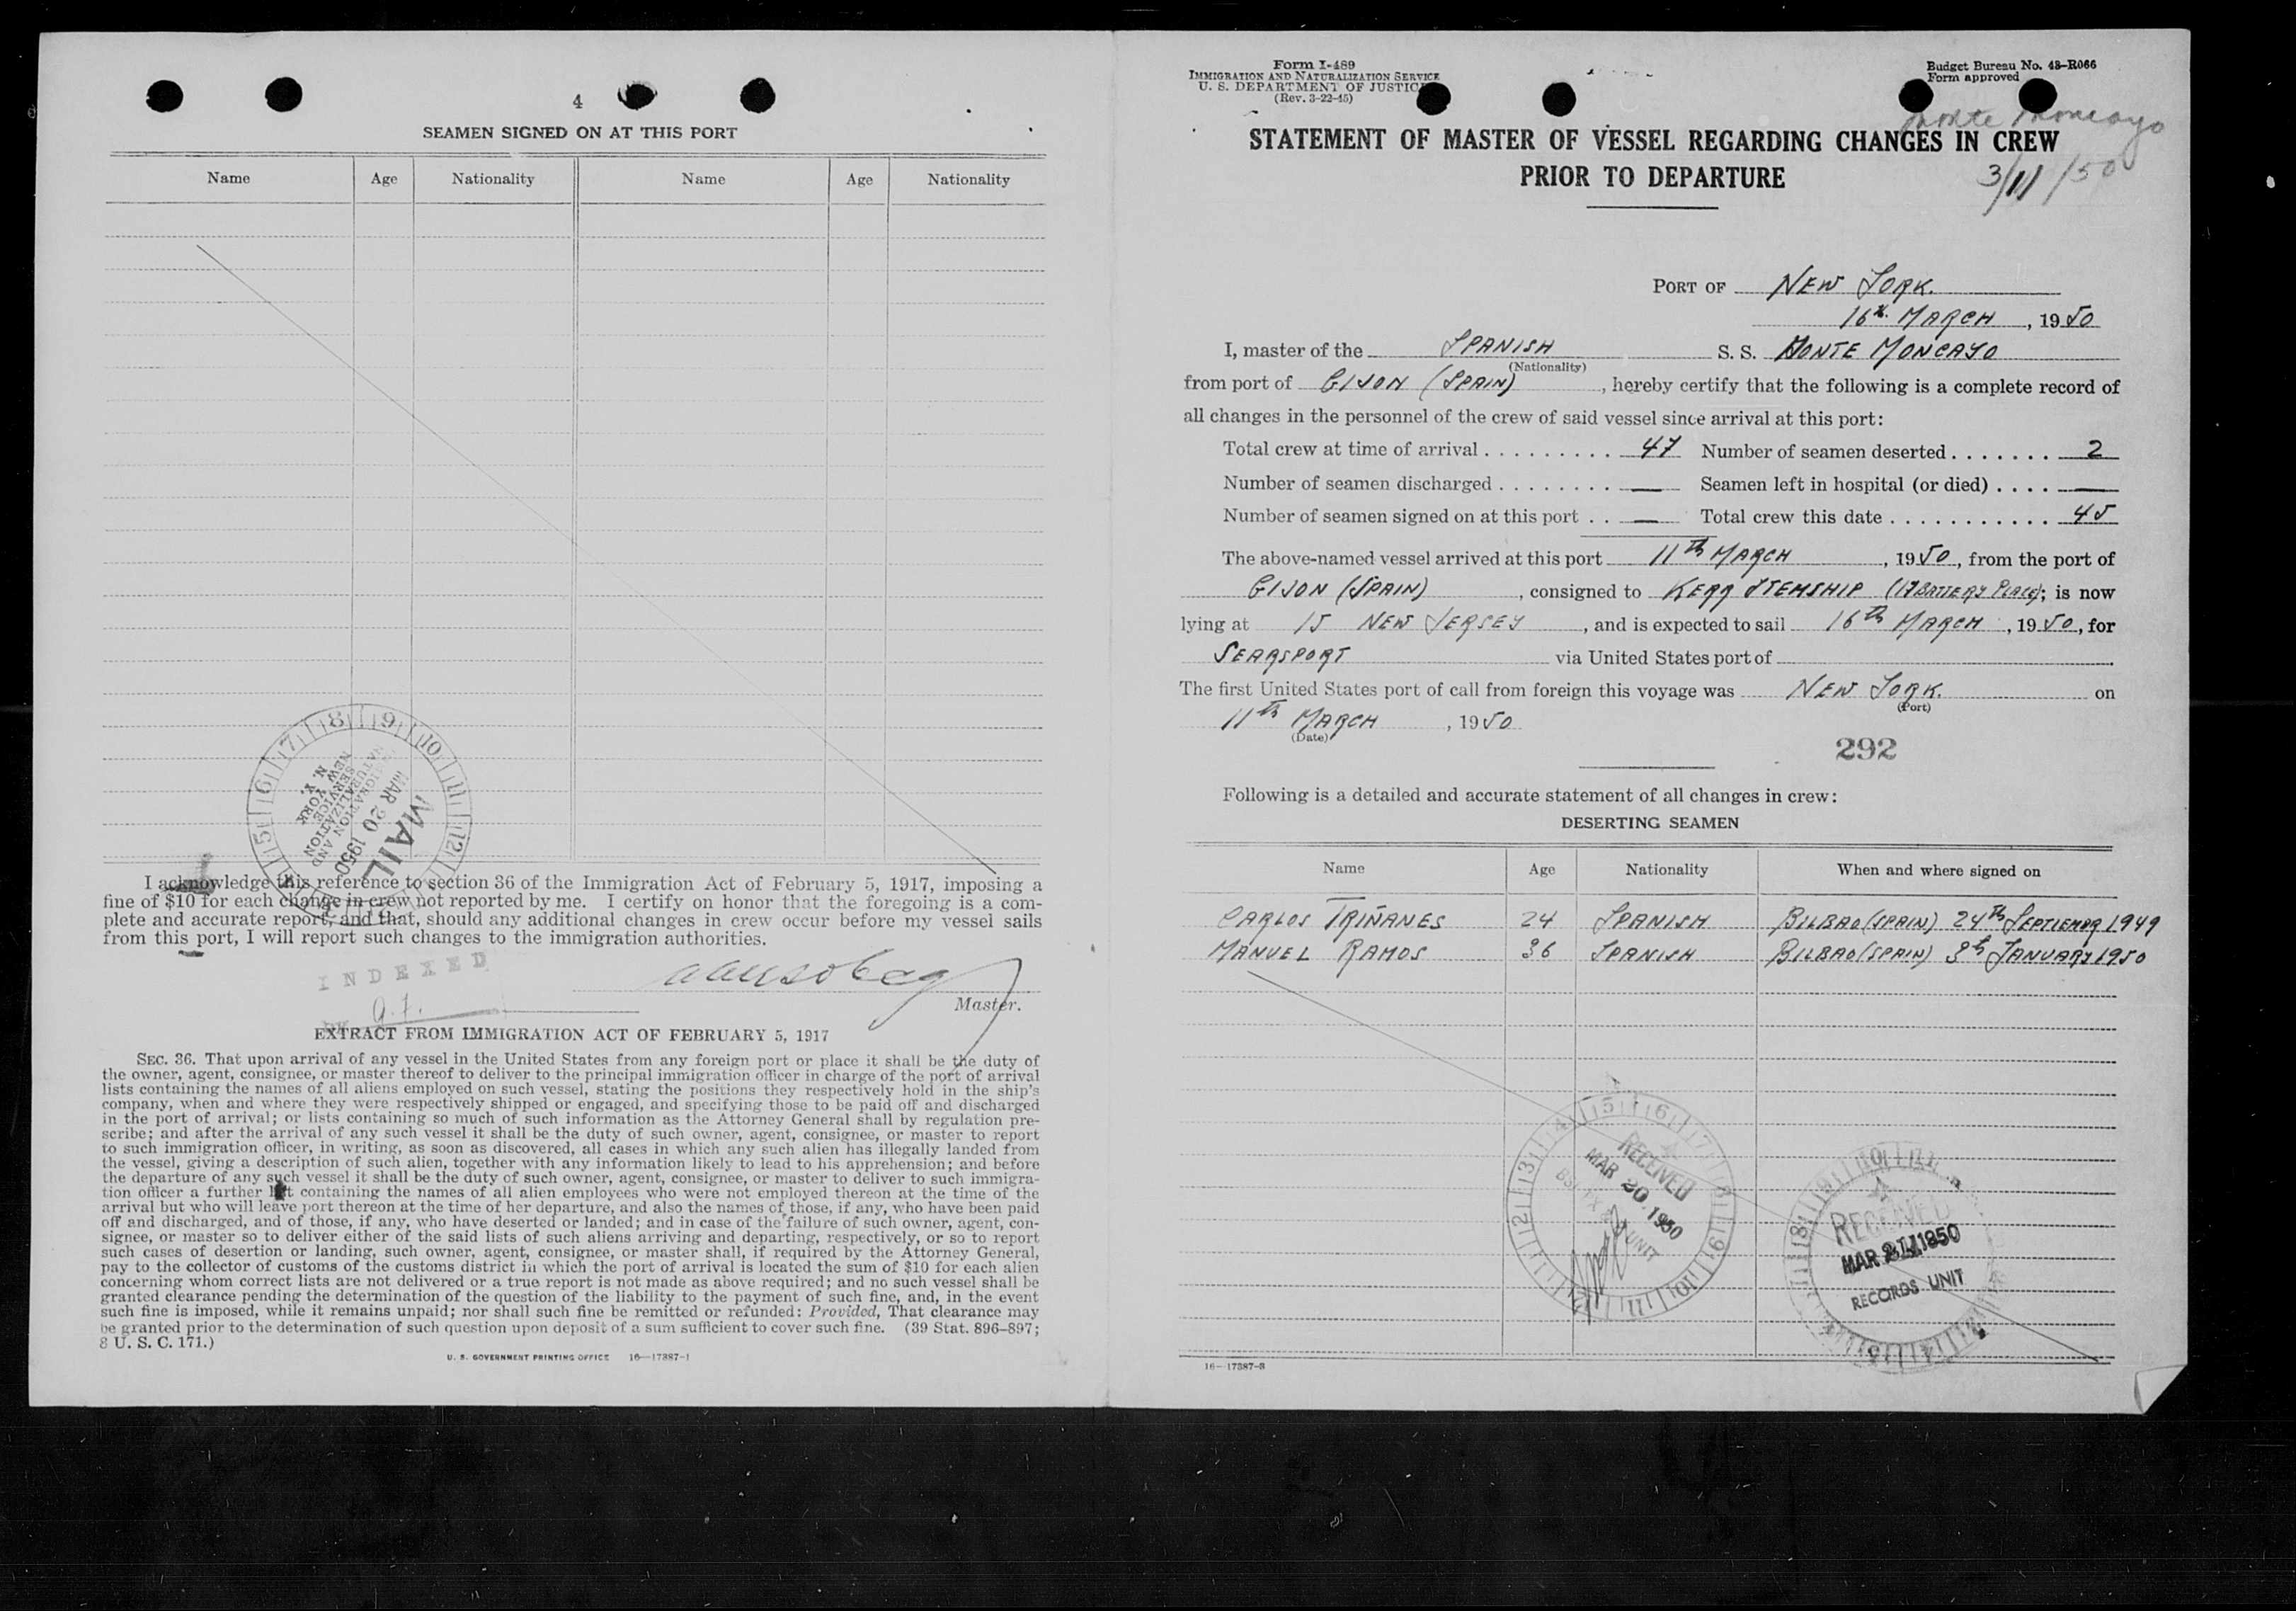 4
SEAMEN SIGNED ON AT THIS PORT
Name Age Nationality Name Age Nationality
MAIL
MAR 20 1950
IMMIGRATION AND
NATURALIZATION
SERVICE
NEW YORK
N. Y.
I acknowledge this reference to section 36 of the Immigration Act of February 5, 1917, imposing a
fine of $10 for each change in crew not reported by me. I certify on honor that the foregoing is a com-
plete and accurate report, and that, should any additional changes in crew occur before my vessel sails
from this port, I will report such changes to the immigration authorities.
INDEXED
Master.
EXTRACT FROM IMMIGRATION ACT OF FEBRUARY 5, 1917
SEC. 36. That upon arrival of any vessel in the United States from any foreign port or place it shall be the duty of
the owner, agent, consignee, or master thereof to deliver to the principal immigration officer in charge of the port of arrival
lists containing the names of all aliens employed on such vessel, stating the positions they respectively hold in the ship's
company, when and where they were respectively shipped or engaged, and specifying those to be paid off and discharged
in the port of arrival; or lists containing so much of such information as the Attorney General shall by regulation pre-
scribe; and after the arrival of any such vessel it shall be the duty of such owner, agent, consignee, or master to report
to such immigration officer, in writing, as soon as discovered, all cases in which any such alien has illegally landed from
the vessel, giving a description of such alien, together with any information likely to lead to his apprehension; and before
the departure of any such vessel it shall be the duty of such owner, agent, consignee, or master to deliver to such immigra-
tion officer a further list containing the names of all alien employees who were not employed thereon at the time of the
arrival but who will leave port thereon at the time of her departure, and also the names of those, if any, who have been paid
off and discharged, and of those, if any, who have deserted or landed; and in case of the failure of such owner, agent, con-
signee, or master so to deliver either of the said lists of such aliens arriving and departing, respectively, or so to report
such cases of desertion or landing, such owner, agent, consignee, or master shall, if required by the Attorney General,
pay to the collector of customs of the customs district in which the port of arrival is located the sum of $10 for each alien
concerning whom correct lists are not delivered or a true report is not made as above required; and no such vessel shall be
granted clearance pending the determination of the question of the liability to the payment of such fine, and, in the event
such fine is imposed, while it remains unpaid; nor shall such fine be remitted or refunded: Provided, That clearance may
be granted prior to the determination of such question upon deposit of a sum sufficient to cover such fine. (39 Stat. 896-897;
8 U. S. C. 171.)
U. S. GOVERNMENT PRINTING OFFICE 16—17387-1
Form I-489
IMMIGRATION AND NATURALIZATION SERVICE
U. S. DEPARTMENT OF JUSTICE
(Rev. 3-22-45)
Budget Bureau No. 43-R066
Form approved
Monte Moncayo
3/11/50
STATEMENT OF MASTER OF VESSEL REGARDING CHANGES IN CREW
PRIOR TO DEPARTURE
PORT OF NEW YORK.
16th MARCH, 1950
I, master of the SPANISH S. S. MONTE MONCAYO
(Nationality)
from port of GIJON (SPAIN), hereby certify that the following is a complete record of
all changes in the personnel of the crew of said vessel since arrival at this port:
Total crew at time of arrival . . . . . . . . . 47 Number of seamen deserted . . . . . . . 2
Number of seamen discharged . . . . . . . . — Seamen left in hospital (or died) . . . . —
Number of seamen signed on at this port . . — Total crew this date . . . . . . . . . . . 45
The above-named vessel arrived at this port 11th MARCH, 1950, from the port of
GIJON (SPAIN), consigned to KERR STEMSHIP (17 BATTERY PLACE); is now
lying at 15 NEW JERSEY, and is expected to sail 16th MARCH, 1950, for
SEARSPORT via United States port of
The first United States port of call from foreign this voyage was NEW YORK. on
(Port)
11th MARCH, 1950
(Date)
292
Following is a detailed and accurate statement of all changes in crew:
DESERTING SEAMEN
Name Age Nationality When and where signed on
CARLOS TRIÑANES 24 SPANISH BILBAO (SPAIN) 24th SEPTIEMBR 1949
MANUEL RAMOS 36 SPANISH BILBAO (SPAIN) 8th JANUARY 1950
RECEIVED
MAR 20 1950
UNIT
RECEIVED
MAR 21 1950
RECORDS UNIT
16—17387-3